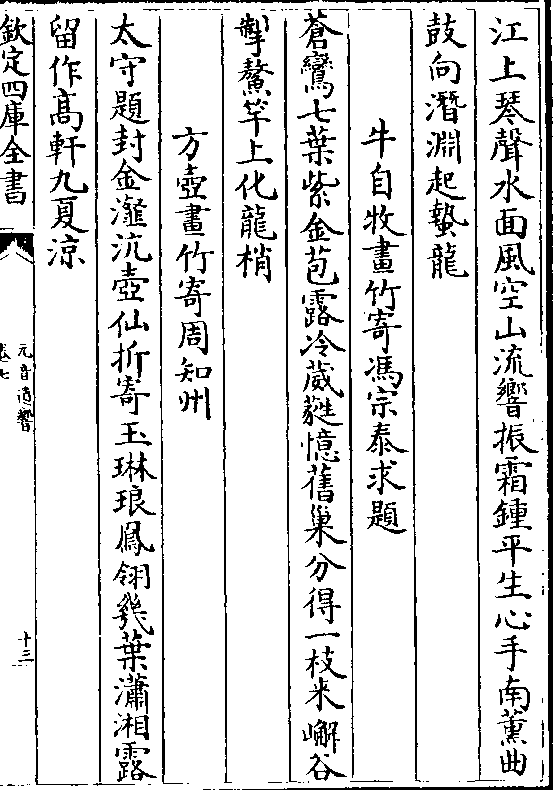 江上琴聲水面風空山流響振霜鍾平生心手南薫曲
鼓向潛淵起蟄龍
牛自牧畫竹寄馮宗泰求題
蒼鸞七葉紫金苞露冷葳蕤憶舊巢分得一枝來嶰谷
掣鰲竿上化龍梢
方壺畫竹寄周知州
太守題封金灔沆壺仙折寄玉琳琅鳳翎幾葉瀟湘露
留作髙軒九夏凉
欽定四庫全書
元音遺響
卷七
十三